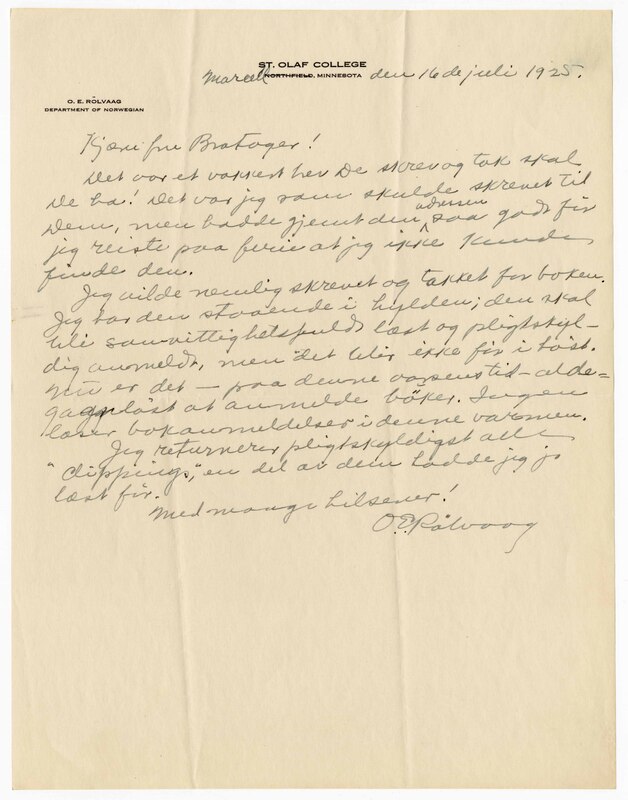 ST. OLAF COLLEGE
Marcell NORTHFIELD, MINNESOTA den 16de juli 1925.
O. E. RÖLVAAG
DEPARTMENT OF NORWEGIAN
Kjære fru Bratager!
Det var et vakkert brev De skrev og tak skal
De ha! Det var jeg som skulde skrevet til
Dem, men hadde gjemt den adressen saa godt før
jeg reiste paa ferie at jeg ikke kunde
finde den.
Jeg vilde nemlig skrevet og takket for boken.
Jeg har den staaende i hylden; den skal
bli samvittighetsfuldt læst og pligtskyl-
dig anmeldt, men det blir ikke før i höst.
Nu er det — paa denne aarsens tid —
gagnlöst at anmelde böker. Ingen
læser bokanmeldelser i denne varmen.
Jeg returnerer pligtskyldigst alle
"clippings", en del av dem hadde jeg jo
læst før.
Med mange hilsener!
O.E. Rölvaag